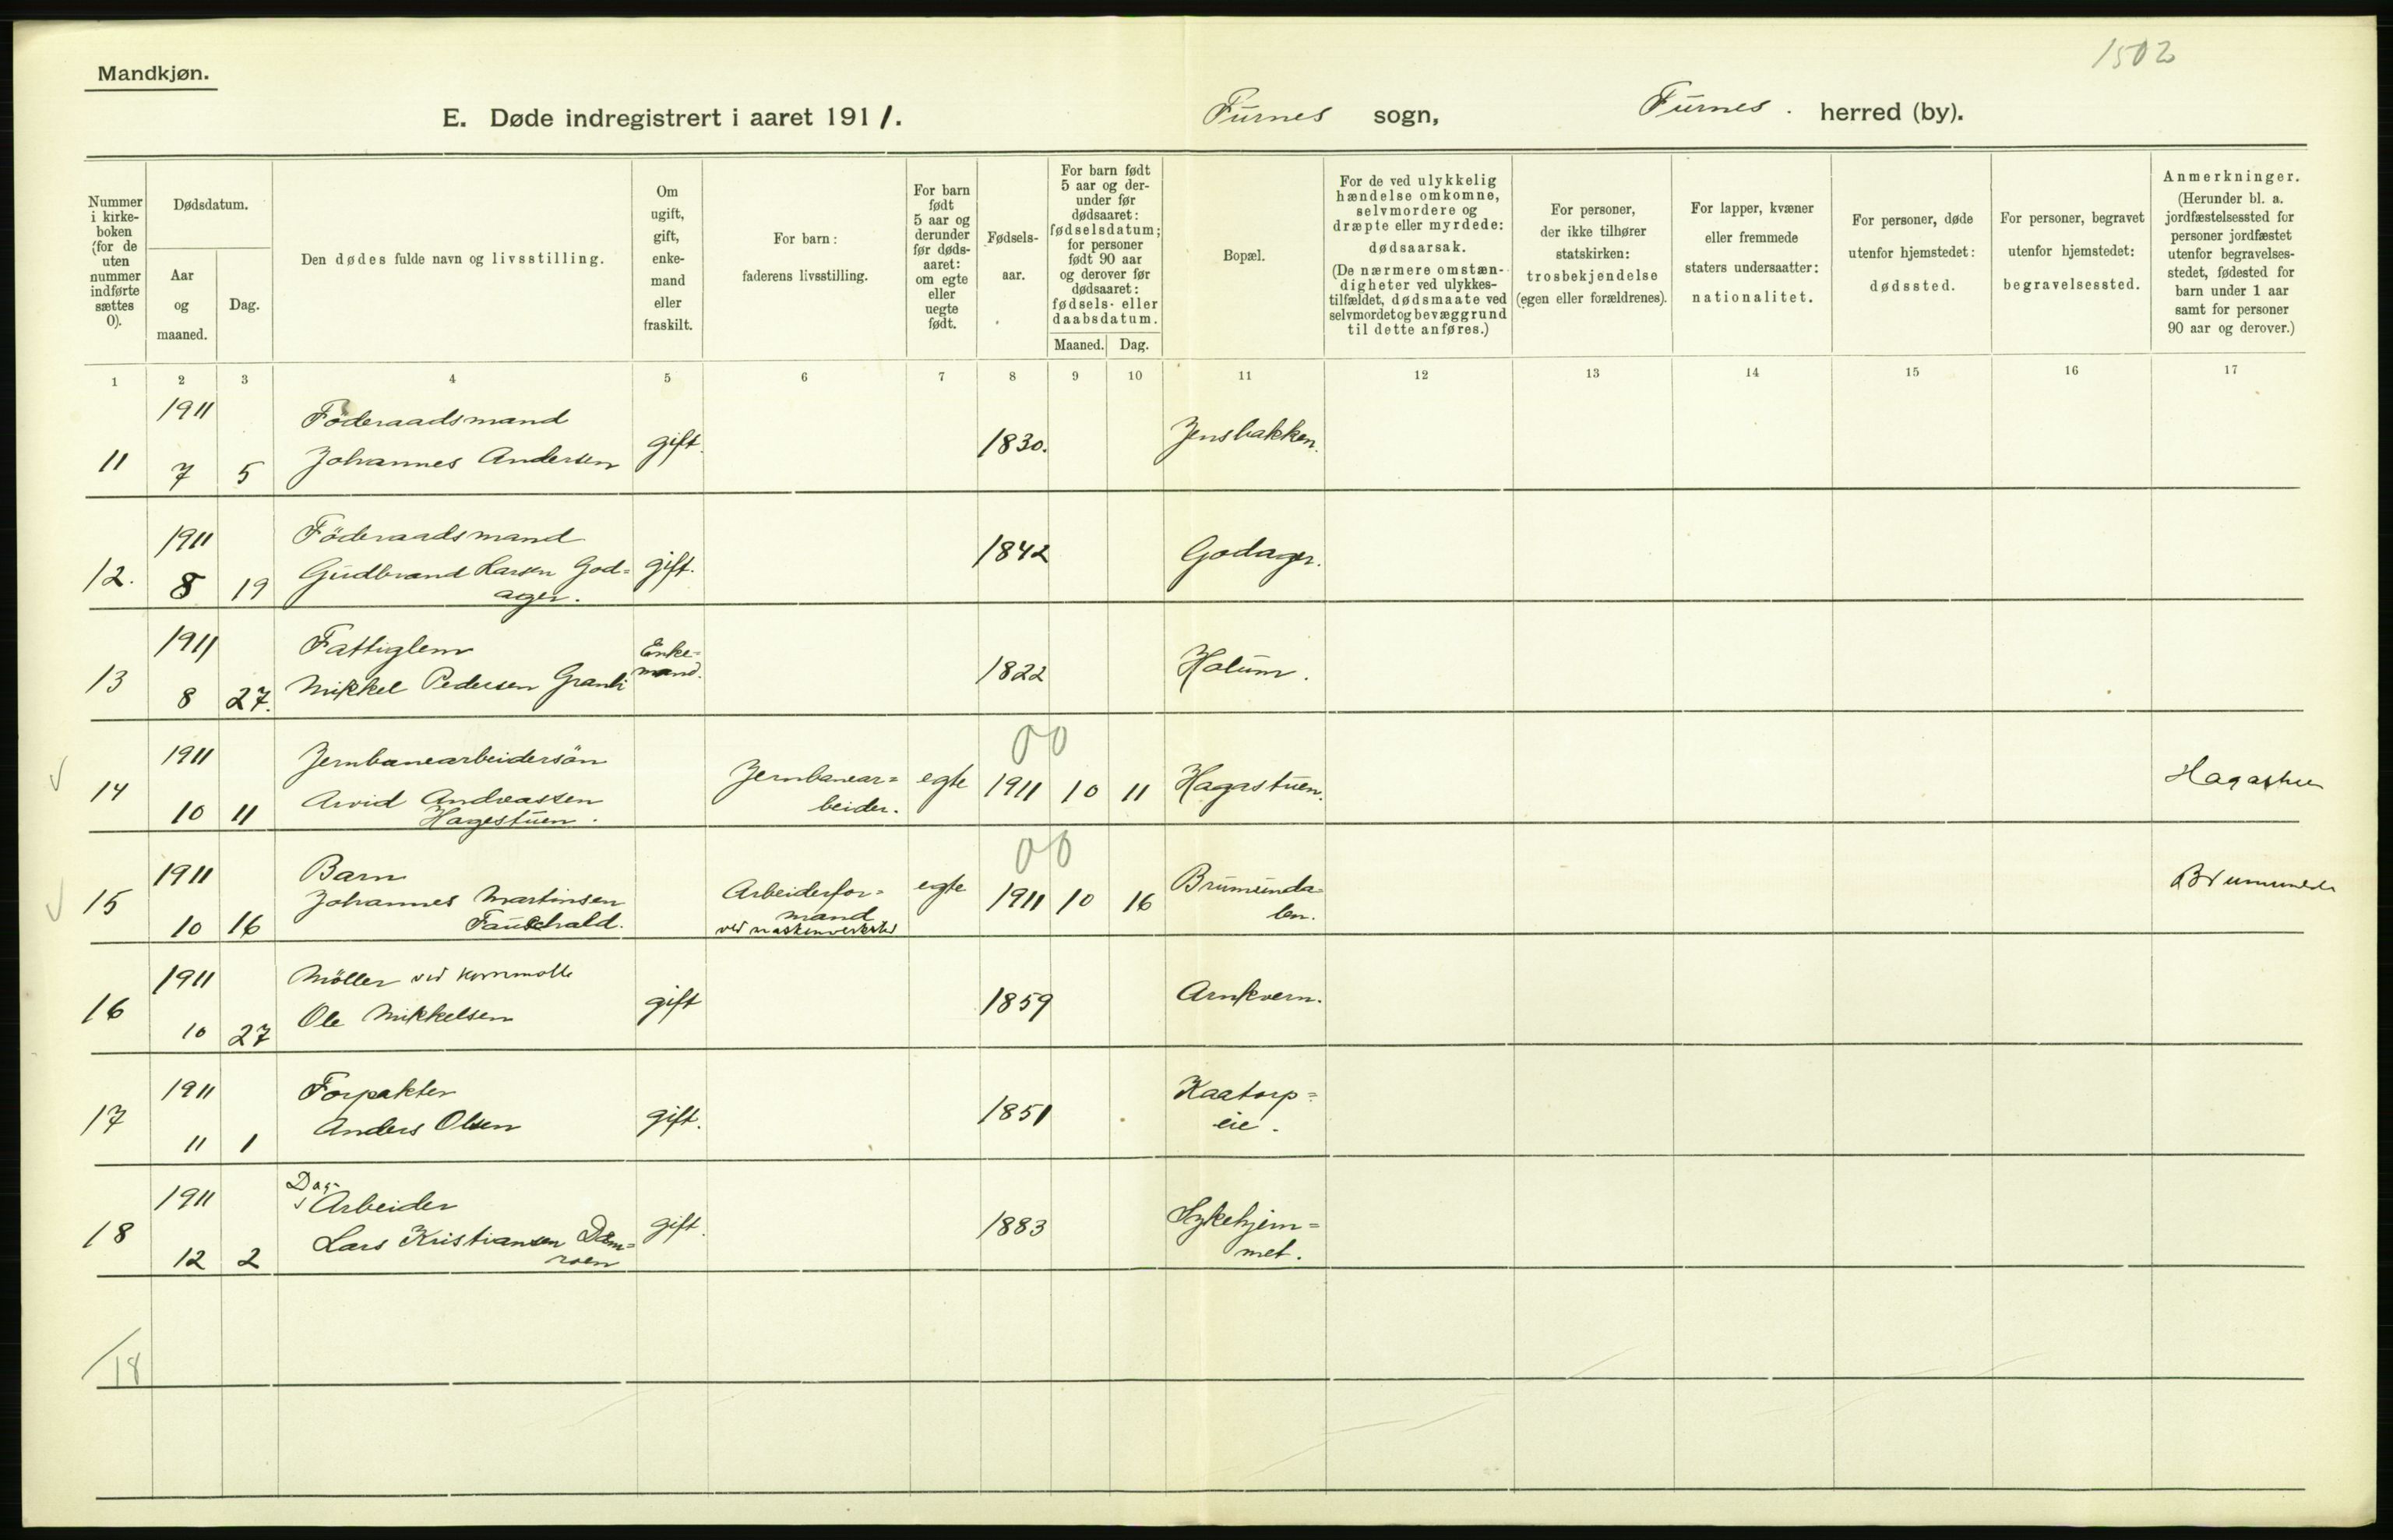 1502
Mandkjøn.
E. Døde indregistrert i aaret 1911.
Furnes sogn,
Furnes. herred (by).
Nummer i kirke-boken (for de uten nummer indførte sættes 0).
Dødsdatum.
Aar og maaned.
Dag.
Den dødes fulde navn og livsstilling.
Om ugift, gift, enke-mand eller fraskilt.
For barn: faderens livsstilling.
For barn født 5 aar og derunder før døds-aaret: om egte eller uegte født.
Fødsels-aar.
For barn født 5 aar og der-under før dødsaaret: fødselsdatum; for personer født 90 aar og derover før dødsaaret: fødsels- eller daabsdatum.
Maaned.
Dag.
Bopæl.
For de ved ulykkelig hændelse omkomne, selvmordere og dræpte eller myrdede: dødsaarsak. (De nærmere omstæn-digheter ved ulykkes-tilfældet, dødsmaate ved selvmordet og bevæggrund til dette anføres.)
For personer, der ikke tilhører statskirken: trosbekjendelse (egen eller forældrenes).
For lapper, kvæner eller fremmede staters undersaatter: nationalitet.
For personer, døde utenfor hjemstedet: dødssted.
For personer, begravet utenfor hjemstedet: begravelsessted.
Anmerkninger. (Herunder bl. a. jordfæstelsessted for personer jordfæstet utenfor begravelses-stedet, fødested for barn under 1 aar samt for personer 90 aar og derover.)
1 2 3 4 5 6 7 8 9 10 11 12 13 14 15 16 17
1911 Föderaadsmand
11 7 5 Johannes Andersen gift. 1830. Jensbakken.
1911 Föderaadsmand
12. 8 19 Gudbrand Larsen God= gift. 1842 Godager.
ager.
1911 Fattiglem Enke=
13 8 27. Mikkel Pedersen Granli mand. 1822 Holum.
00
1911 Jernbanearbeidersön Jernbanear= egte 1911 10 11 Hagastuen. Hagastuen
14 10 11 Arvid Andreassen beider.
Hagestuen.
00
1911 Barn
15 10 16 Johannes Martinsen Arbeiderfor= egte 1911 10 16 Brumunda=
Fauschald. mand len.
ved maskinverksted
1911 Möller ved kornmølle
16 10 27 Ole Mikkelsen gift 1859 Arnkvern.
1911 Forpakter Kaatorp=
17 11 1 Anders Olsen gift. 1851 eie.
Dag-
1911 Arbeider
18 12 2 Lars Kristiansen Dam= gift. 1883 Sykehjem=
roen met.
18